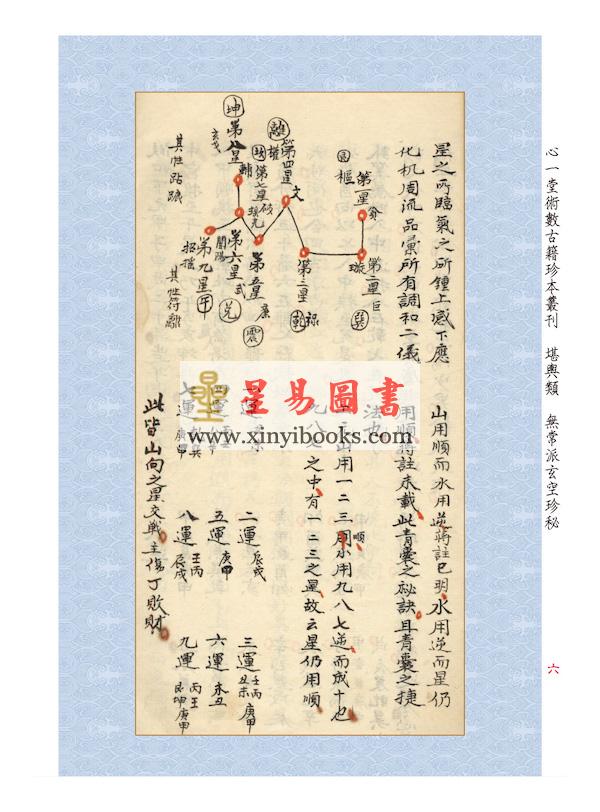 心一堂術數古籍珍本叢刊　堪輿類　無常派玄空珍秘
六
星之所臨氣之所鍾上感下應
化机周流品彙所有調和二儀
第一星
貪
樞
第二星
巨
璇
巽
第三星
祿
乾
第四星
文
權
離
第五星
廉
震
第六星
武
闓陽
兌
第七星
破
瑤光
第八星
輔
坤
玄戈
其性踏蹠
第九星
招搖
其性符離
山用順而水用逆蔣註已明水用逆而星仍
用順蔣註未載此青囊之秘訣且青囊之捷
法也
山用一二三順用水用九八七逆而成十也
九八七之中有一二三之星故云星仍用順
二運
辰戌
三運
壬丙
丑未
庚甲
五運
庚甲
六運
未丑
七運
庚甲
八運
壬丙
辰戌
九運
丙壬
艮坤庚甲
此皆山向之星交戰主傷丁敗財
星易圖書
www.xinyibooks.com